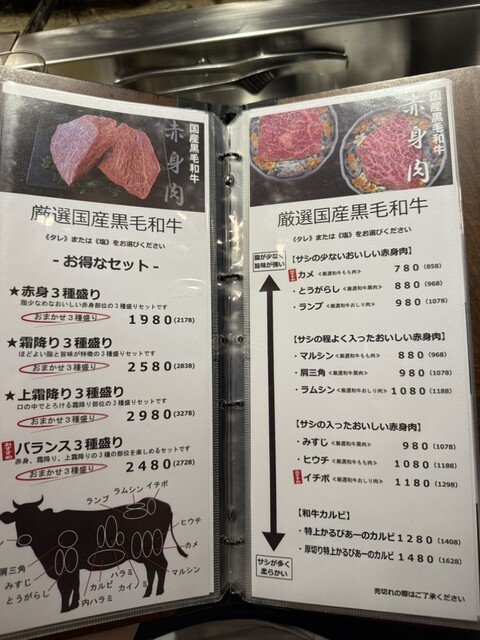 国産黒毛和牛
赤身肉
厳選国産黒毛和牛
《タレ》または《塩》をお選びください
- お得なセット -
★赤身３種盛り
脂少なめなおいしい赤身部位の３種盛りセットです
おまかせ３種盛り 1980(2178)
★霜降り３種盛り
ほどよい脂と旨味が特徴の３種盛りセットです
おまかせ３種盛り 2580(2838)
★上霜降り３種盛り
口の中でとろける霜降り部位の３種盛りセットです
おまかせ３種盛り 2980(3278)
おすすめ バランス３種盛り
赤身、霜降り、上霜降りの３種の部位を楽しめるセットです
おまかせ３種盛り 2480(2728)
イチボ
ラムシン
ランプ
ヒウチ
カメ
マルシン
カイノミ
ハラミ
カルビ
内ハラミ
肩三角
みすじ
とうがらし
国産黒毛和牛
赤身肉
厳選国産黒毛和牛
《タレ》または《塩》をお選びください
脂が少なく
旨味が強い
【サシの少ないおいしい赤身肉】
おすすめ カメ ≪厳選和牛もも肉≫ 780(858)
・とうがらし ≪厳選和牛肩肉≫ 880(968)
・ランプ ≪厳選和牛おしり肉≫ 980(1078)
【サシの程よく入ったおいしい赤身肉】
・マルシン ≪厳選和牛もも肉≫ 880(968)
・肩三角 ≪厳選和牛肩肉≫ 980(1078)
・ラムシン ≪厳選和牛おしり肉≫ 1080(1188)
【サシの入ったおいしい赤身肉】
・みすじ ≪厳選和牛肩肉≫ 980(1078)
・ヒウチ ≪厳選和牛もも肉≫ 1080(1188)
おすすめ イチボ ≪厳選和牛おしり肉≫ 1180(1298)
【和牛カルビ】
・特上かるびあーのカルビ 1280(1408)
・厚切り特上かるびあーのカルビ 1480(1628)
サシが多く
柔らかい
売切れの際はご了承ください